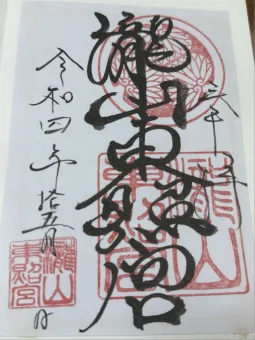 瀧山東照宮
令和四年拾五月日
瀧山
東照宮
瀧山
東照宮